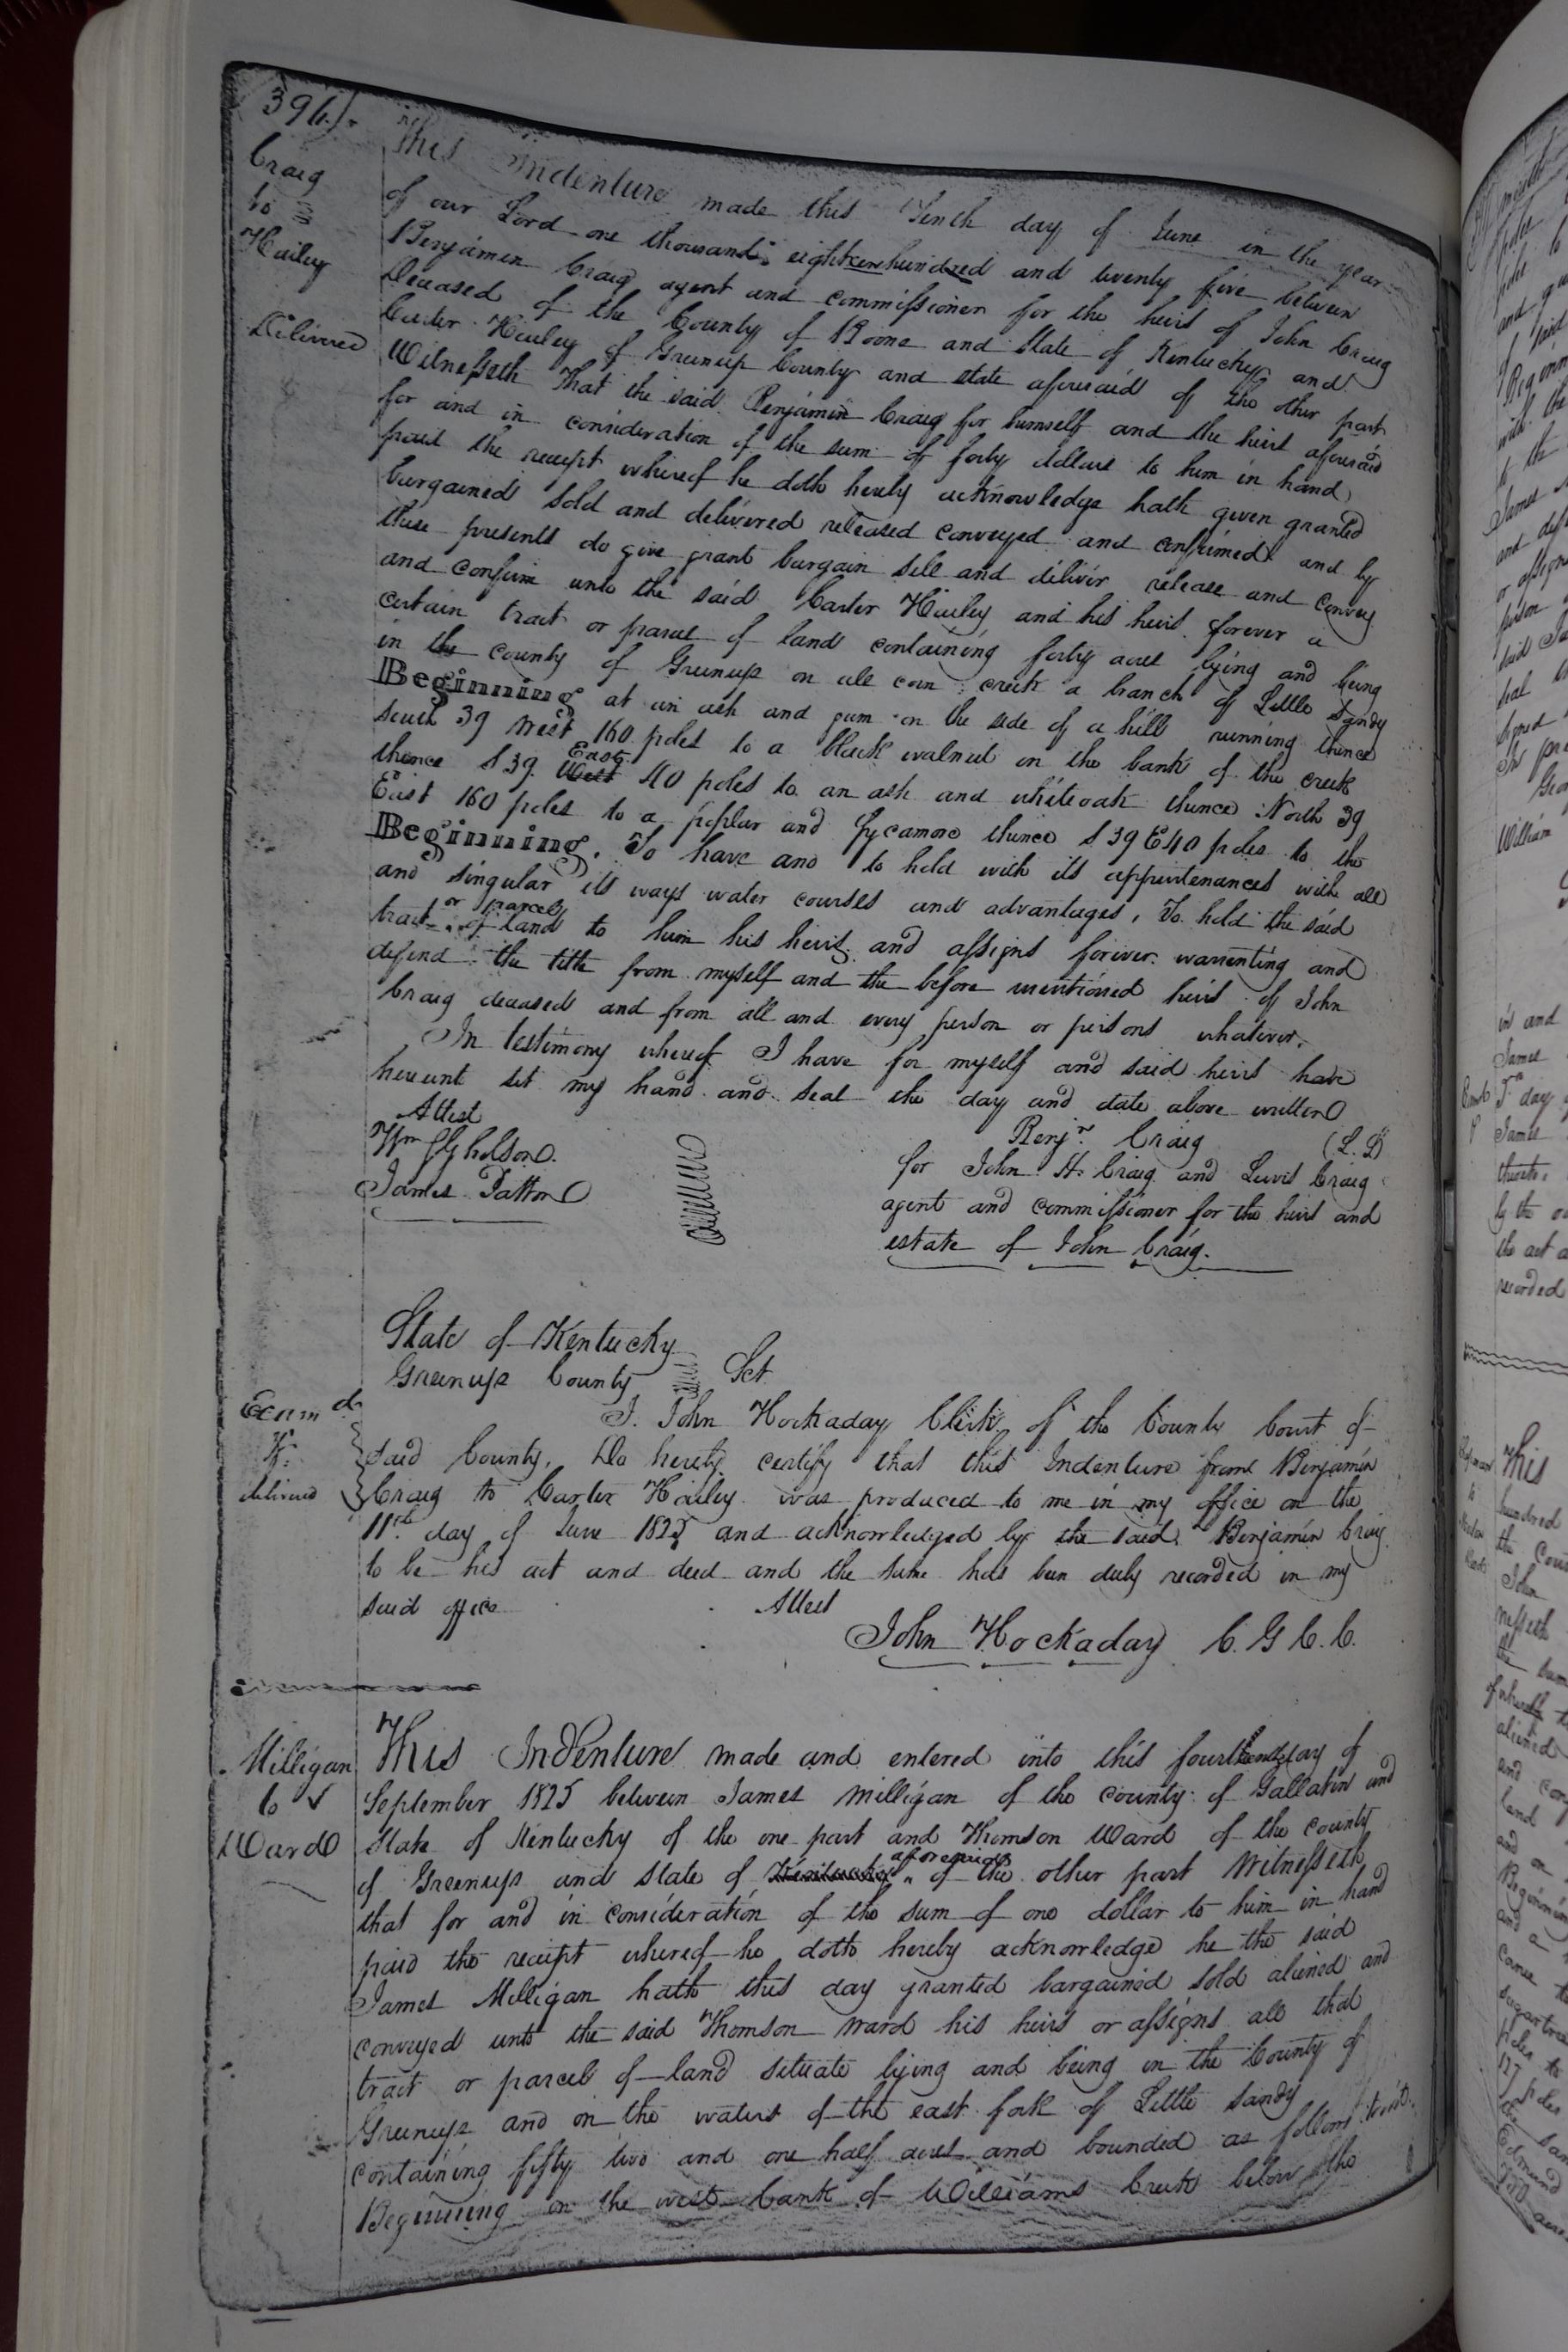 396.
Craig
to
Hailey
Delivered
This Indenture made this Tenth day of June in the year
of our Lord one thousand eighteen hundred and twenty five between
Benjamin Craig agent and commissioner for the heirs of John Craig
Deceased of the County of Boone and State of Kentucky and
Carter Hailey of Greenup County and state aforesaid of the other part
Witnesseth That the said Benjamin Craig for himself and the heirs aforesaid
for and in consideration of the sum of forty dollars to him in hand
paid the receipt whereof he doth hereby acknowledge hath given granted
bargained sold and delivered released conveyed and confirmed and by
these presents do give grant bargain sell and deliver release and convey
and confirm unto the said Carter Hailey and his heirs forever a
certain tract or parcel of land containing forty acres lying and being
in the county of Greenup on ale corn creek a branch of Little Sandy
Beginning at an ash and gum on the side of a hill running thence
south 39 west 160 poles to a black walnut on the bank of the creek
thence S 39. West East 40 poles to an ash and whiteoak thence North 39
East 160 poles to a poplar and Sycamore thence S 39 E 40 poles to the
Beginning. To have and to hold with its appurtenances with all
and singular its ways water courses and advantages, To hold the said
tract or parcel of land to him his heirs and assigns forever warrenting and
defend the title from myself and the before mentioned heirs of John
Craig deceased and from all and every person or persons whatever.
In testimony whereof I have for myself and said heirs have
hereunt set my hand and seal the day and date above written
Attest
Wm Gholson.
James Patton
Benjn. Craig (L.S)
for John H. Craig and Lewis Craig
agent and commissioner for the heirs and
estate of John Craig.
State of Kentucky
Greenup County Sct
Examd.
delivered
I. John Hockaday Clerk of the County Court of
said County, Do hereby certify that this Indenture from Benjamin
Craig to Carter Hailey was produced to me in my office on the
11th day of June 1825 and acknowledged by the said Benjamin Craig
to be his act and deed and the same has been duly recorded in my
said office Attest
John Hockaday C. G C. C.
Milligan
to
Ward
This Indenture made and entered into this fourteenth day of
September 1825 between James Milligan of the county of Gallatin and
State of Kentucky of the one part and Thomson Ward of the county
of Greenup and state of Kentucky aforesaid of the other part Witnesseth
that for and in consideration of the sum of one dollar to him in hand
paid the receipt whereof he doth hereby acknowledge he the said
James Milligan hath this day granted bargained sold aliened and
conveyed unto the said Thomson Ward his heirs or assigns all that
tract or parcel of land situate lying and being in the County of
Greenup and on the waters of the east fork of Little Sandy
containing fifty two and one half acres and bounded as follows towit.
Beginning on the west bank of Williams Creek below the